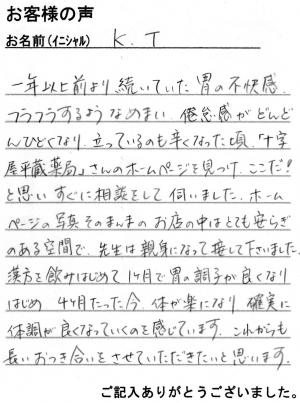 お客様の声
お名前(イニシャル) K.T
一年以上前より続いていた胃の不快感
フラフラするようなめまい、倦怠感がどんど
んひどくなり、立っているのも辛くなった頃、「十字
屋平蔵薬局」さんのホームページを見つけ、ここだ!
と思いすぐに相談をして伺いました。ホーム
ページの写真そのまんまのお店の中はとても安らぎ
のある空間で、先生は親身になって接して下さいました。
漢方を飲みはじめて1ヶ月で胃の調子が良くなり
はじめ 4ヶ月たった今、体が楽になり 確実に
体調が良くなっていくのを感じています。これからも
長いおつき合いをさせていただきたいと思います。
ご記入ありがとうございました。